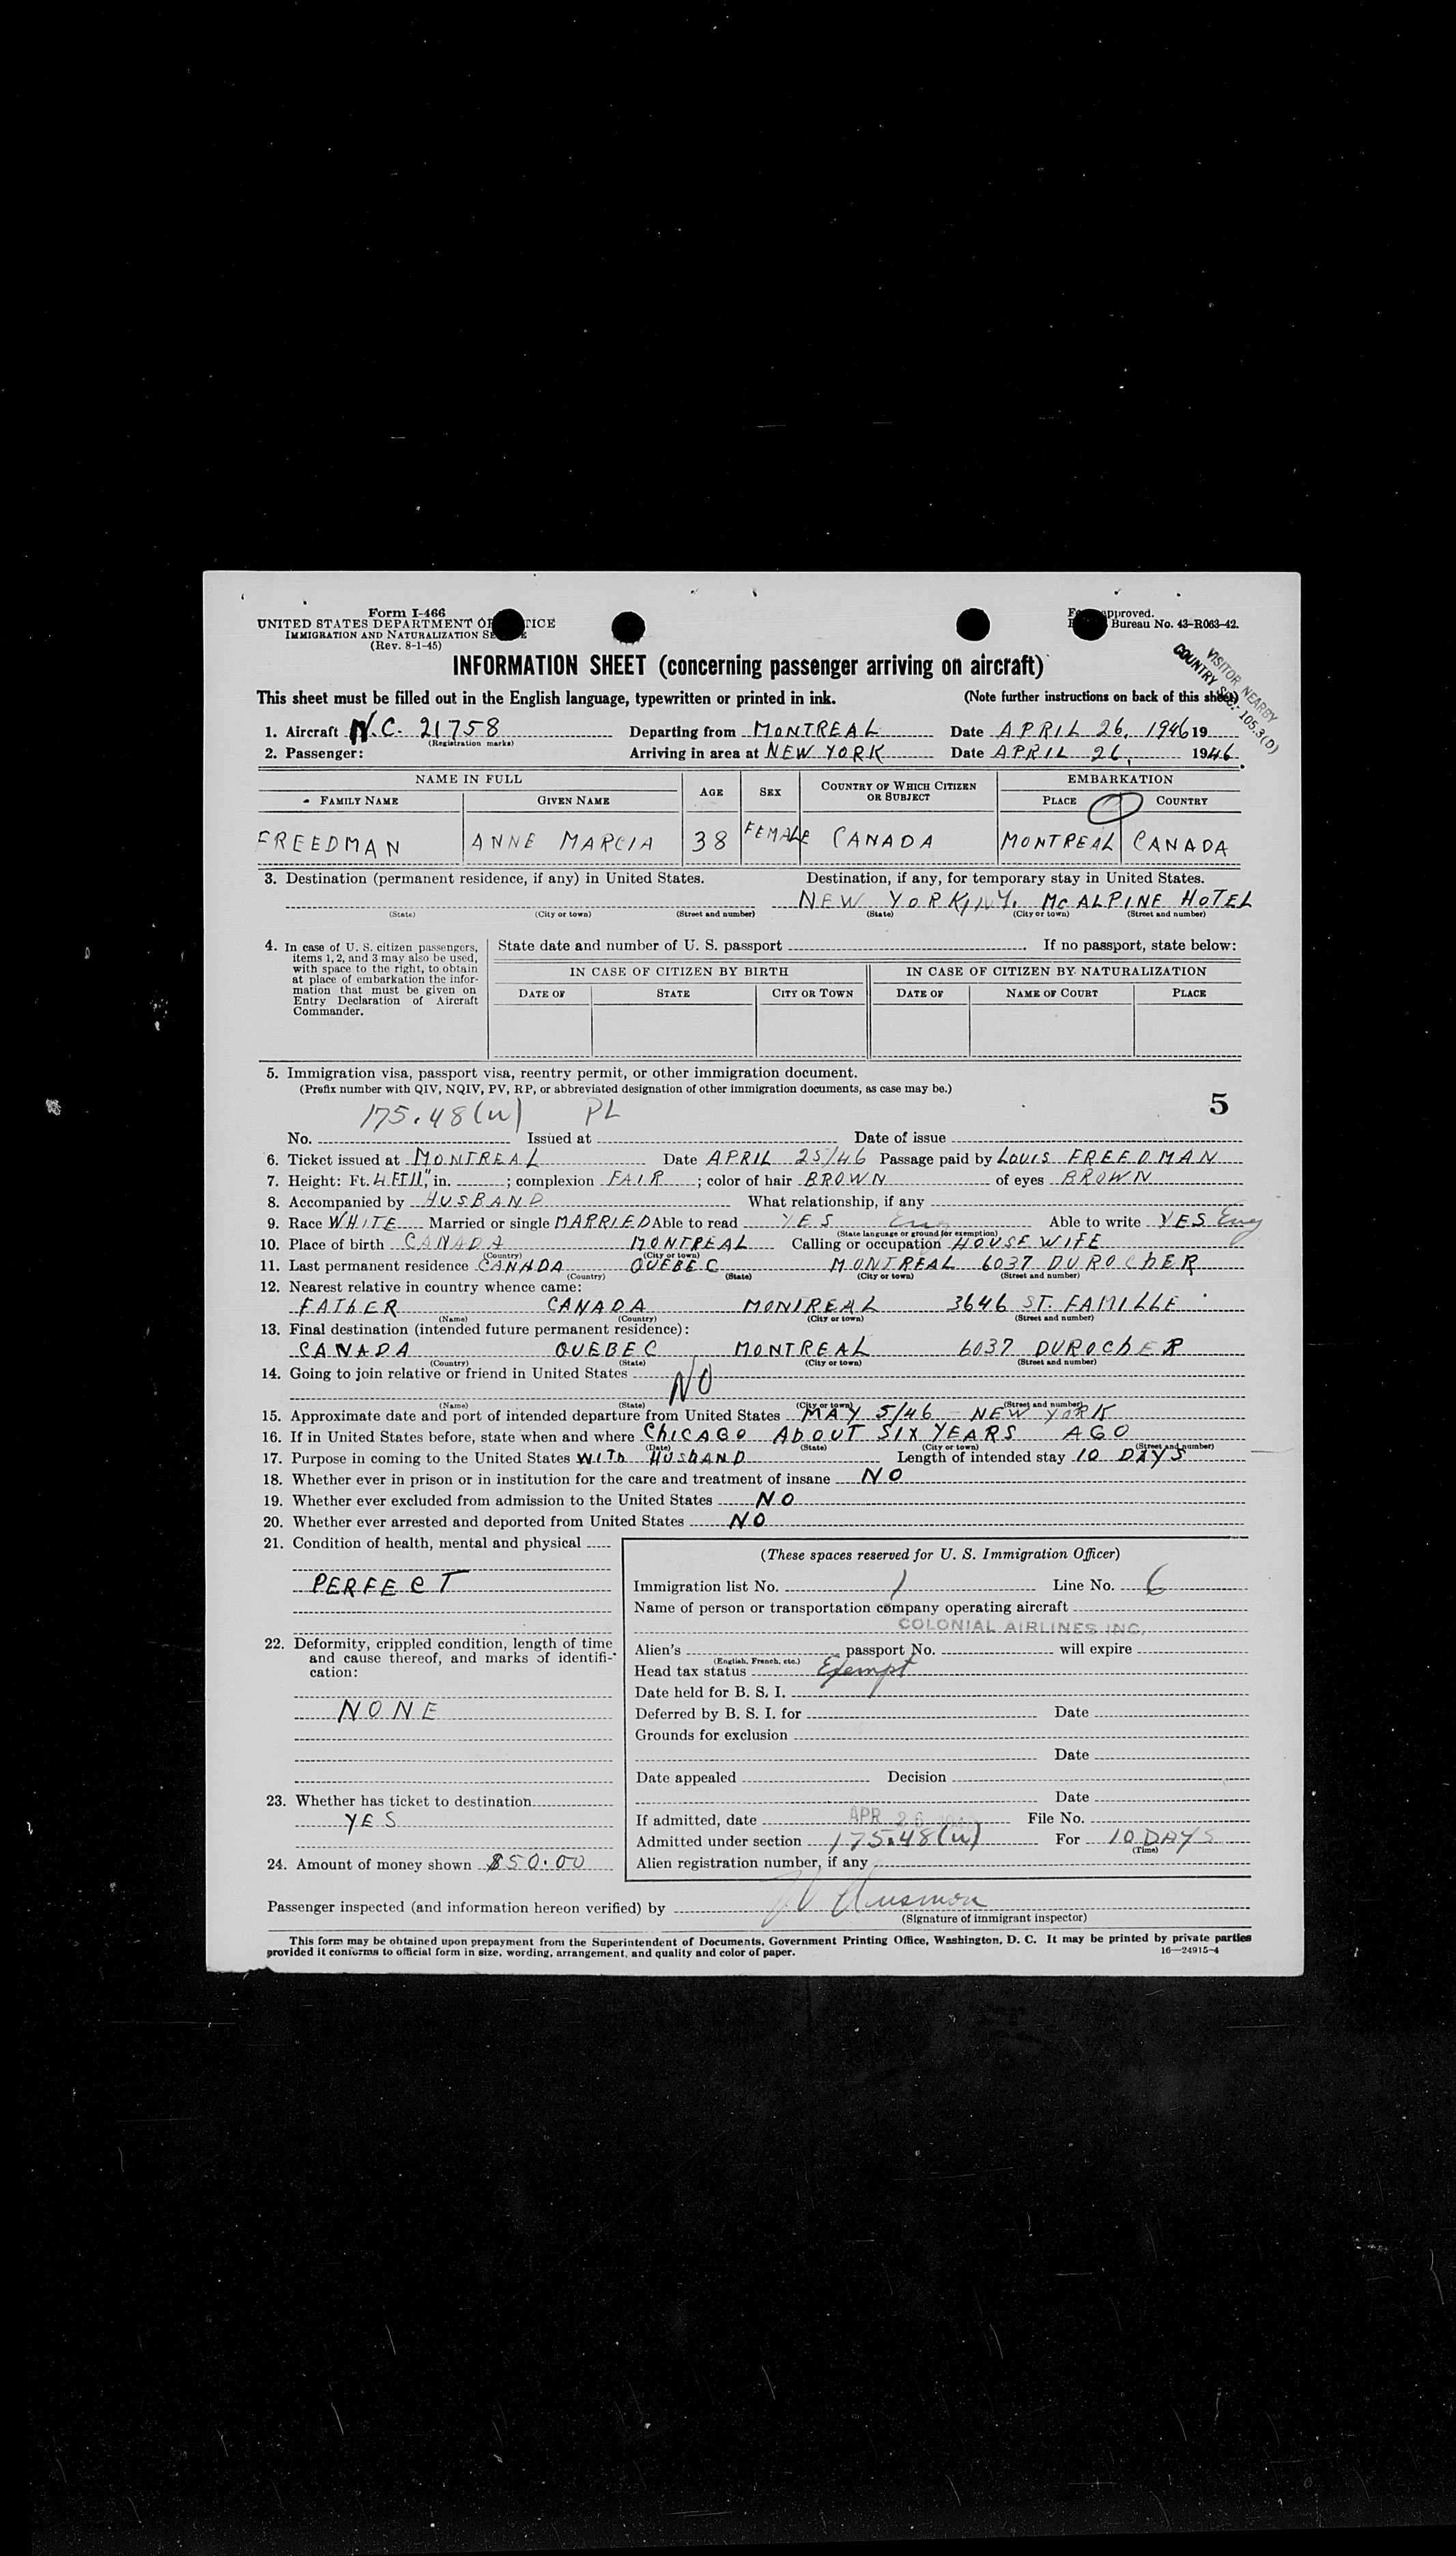 Form I-466
UNITED STATES DEPARTMENT OF JUSTICE
IMMIGRATION AND NATURALIZATION SE
(Rev. 8-1-45)
pproved.
Bureau No. 43-R063-42.
INFORMATION SHEET (concerning passenger arriving on aircraft)
VISITOR NEARBY
COUNTRY SEC.-105.3(D)
This sheet must be filled out in the English language, typewritten or printed in ink. (Note further instructions on back of this sheet)
1. Aircraft N.C. 21758 Departing from MONTREAL Date APRIL 26, 1946 19
(Registration marks)
2. Passenger: Arriving in area at NEW YORK Date APRIL 26, 1946.
NAME IN FULL AGE SEX COUNTRY OF WHICH CITIZEN OR SUBJECT EMBARKATION
FAMILY NAME GIVEN NAME PLACE COUNTRY
FREEDMAN ANNE MARCIA 38 FEMALE CANADA MONTREAL CANADA
3. Destination (permanent residence, if any) in United States. Destination, if any, for temporary stay in United States.
NEW YORK, N.Y. McALPINE HOTEL
(State) (City or town) (Street and number) (State) (City or town) (Street and number)
4. In case of U. S. citizen passengers, items 1, 2, and 3 may also be used, with space to the right, to obtain at place of embarkation the information that must be given on Entry Declaration of Aircraft Commander.
State date and number of U. S. passport If no passport, state below:
IN CASE OF CITIZEN BY BIRTH IN CASE OF CITIZEN BY NATURALIZATION
DATE OF STATE CITY OR TOWN DATE OF NAME OF COURT PLACE
5. Immigration visa, passport visa, reentry permit, or other immigration document.
(Prefix number with QIV, NQIV, PV, RP, or abbreviated designation of other immigration documents, as case may be.)
175.48(u) PL 5
No. Issued at Date of issue
6. Ticket issued at MONTREAL Date APRIL 25/46 Passage paid by LOUIS FREEDMAN
7. Height: Ft. 4 FT 11", in. ; complexion FAIR ; color of hair BROWN of eyes BROWN
8. Accompanied by HUSBAND What relationship, if any
9. Race WHITE Married or single MARRIED Able to read YES Eng Able to write YES Eng
(State language or ground for exemption)
10. Place of birth CANADA MONTREAL Calling or occupation HOUSE WIFE
(Country) (City or town)
11. Last permanent residence CANADA QUEBEC MONTREAL 6037 DUROCHER
(Country) (State) (City or town) (Street and number)
12. Nearest relative in country whence came:
FATHER CANADA MONTREAL 3646 ST. FAMILLE
(Name) (Country) (City or town) (Street and number)
13. Final destination (intended future permanent residence):
CANADA QUEBEC MONTREAL 6037 DUROCHER
(Country) (State) (City or town) (Street and number)
14. Going to join relative or friend in United States NO
(Name) (State) (City or town) (Street and number)
15. Approximate date and port of intended departure from United States MAY 5/46 - NEW YORK
16. If in United States before, state when and where CHICAGO ABOUT SIX YEARS AGO
(Date) (State) (City or town) (Street and number)
17. Purpose in coming to the United States WITH HUSBAND Length of intended stay 10 DAYS
18. Whether ever in prison or in institution for the care and treatment of insane NO
19. Whether ever excluded from admission to the United States NO
20. Whether ever arrested and deported from United States NO
21. Condition of health, mental and physical
PERFECT
22. Deformity, crippled condition, length of time and cause thereof, and marks of identification:
NONE
23. Whether has ticket to destination
YES
24. Amount of money shown $50.00
(These spaces reserved for U. S. Immigration Officer)
Immigration list No. 1 Line No. 6
Name of person or transportation company operating aircraft
COLONIAL AIRLINES INC.
Alien's passport No. will expire
(English, French, etc.)
Head tax status Exempt
Date held for B. S. I.
Deferred by B. S. I. for Date
Grounds for exclusion
Date
Date appealed Decision
Date
If admitted, date APR 26 File No.
Admitted under section 175.48(u) For 10 DAYS
(Time)
Alien registration number, if any
Passenger inspected (and information hereon verified) by
(Signature of immigrant inspector)
This form may be obtained upon prepayment from the Superintendent of Documents, Government Printing Office, Washington, D. C. It may be printed by private parties
provided it conforms to official form in size, wording, arrangement, and quality and color of paper. 16—24915-4